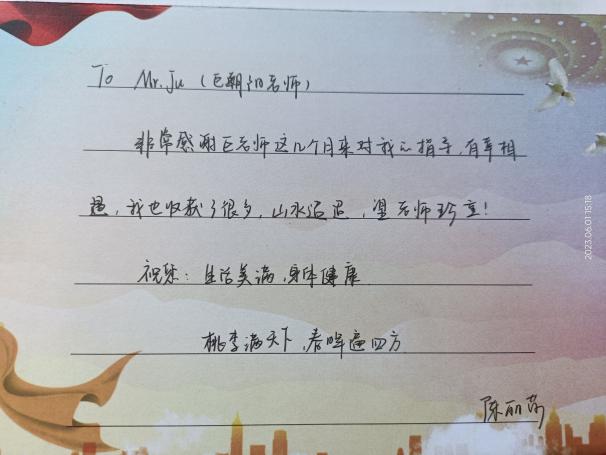 To Mr.Ju (巨朝阳老师)
非常感谢巨老师这几个月来对我的指导,有幸相
遇,我也收获了很多,山水迢迢,望老师珍重!
祝您:生活美满,身体健康
桃李满天下,春晖遍四方
陈丽芮
2023.06.01 15:18